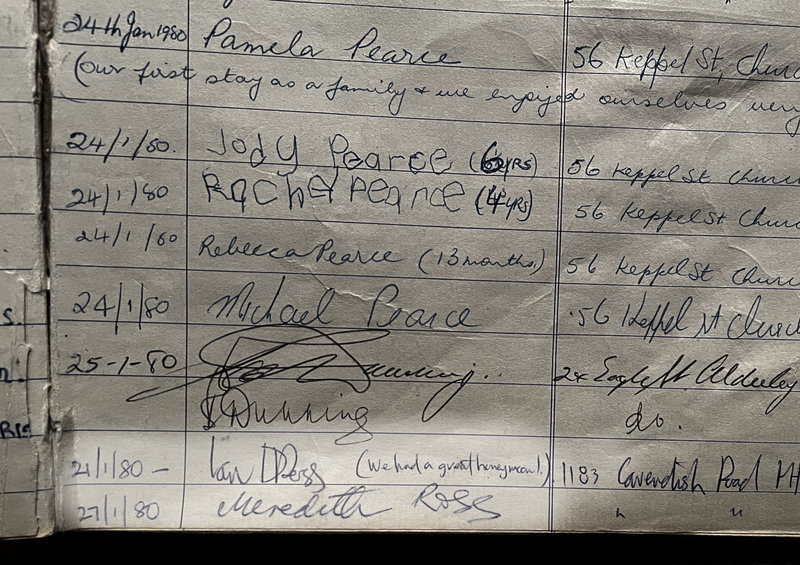 24th Jan 1980 Pamela Pearce 56 Keppel St, Churc
(Our first stay as a family & we enjoyed ourselves very
24/1/80. Jody Pearce (6yrs) 56 Keppel St Churc
24/1/80 Rachel Pearce (4yrs) 56 Keppel St Churc
24/1/80 Rebecca Pearce (13 months) 56 Keppel St Churc
s. 24/1/80 Michael Pearce 56 Keppel St Church
25-1-80 Dunning.. 24 Eagle St. Alderley
Dunning do.
21/1/80 - Ian D Ross (We had a great honeymoon!) 1183 Cavendish Road Mt
27/1/80 Meredith Ross " "